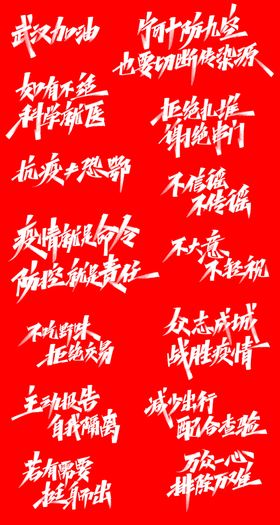 武汉加油
宁可十防九空
也要切断传染源
如有不适
科学就医
拒绝扎堆
谢绝串门
抗疫≠恐鄂
不信谣
不传谣
疫情就是命令
防控就是责任
不大意
不轻视
不吃野味
拒绝交易
众志成城
战胜疫情
主动报告
自我隔离
减少出行
配合查验
若有需要
挺身而出
万众一心
排除万难